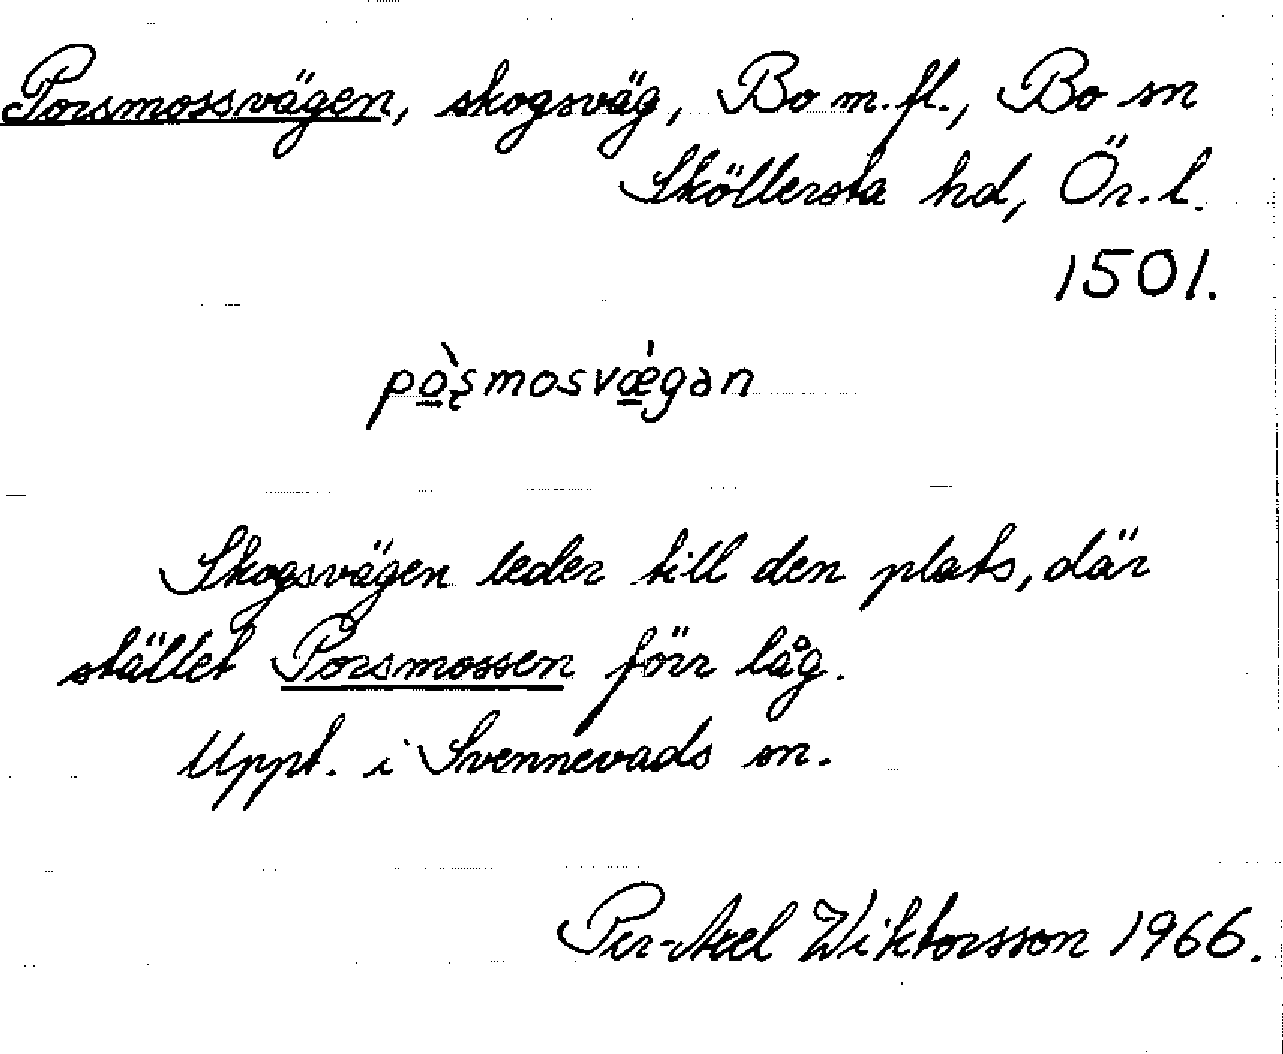 Porsmossvägen, skogsväg, Bo m.fl., Bo sn
Sköllersta hd, Ör.l.
1501.
pò̱ʂmosvǽ̱gən
Skogsvägen leder till den plats, där
stället Porsmossen förr låg.
Uppt. i Svennevads sn.
Per-Axel Wiktorsson 1966.